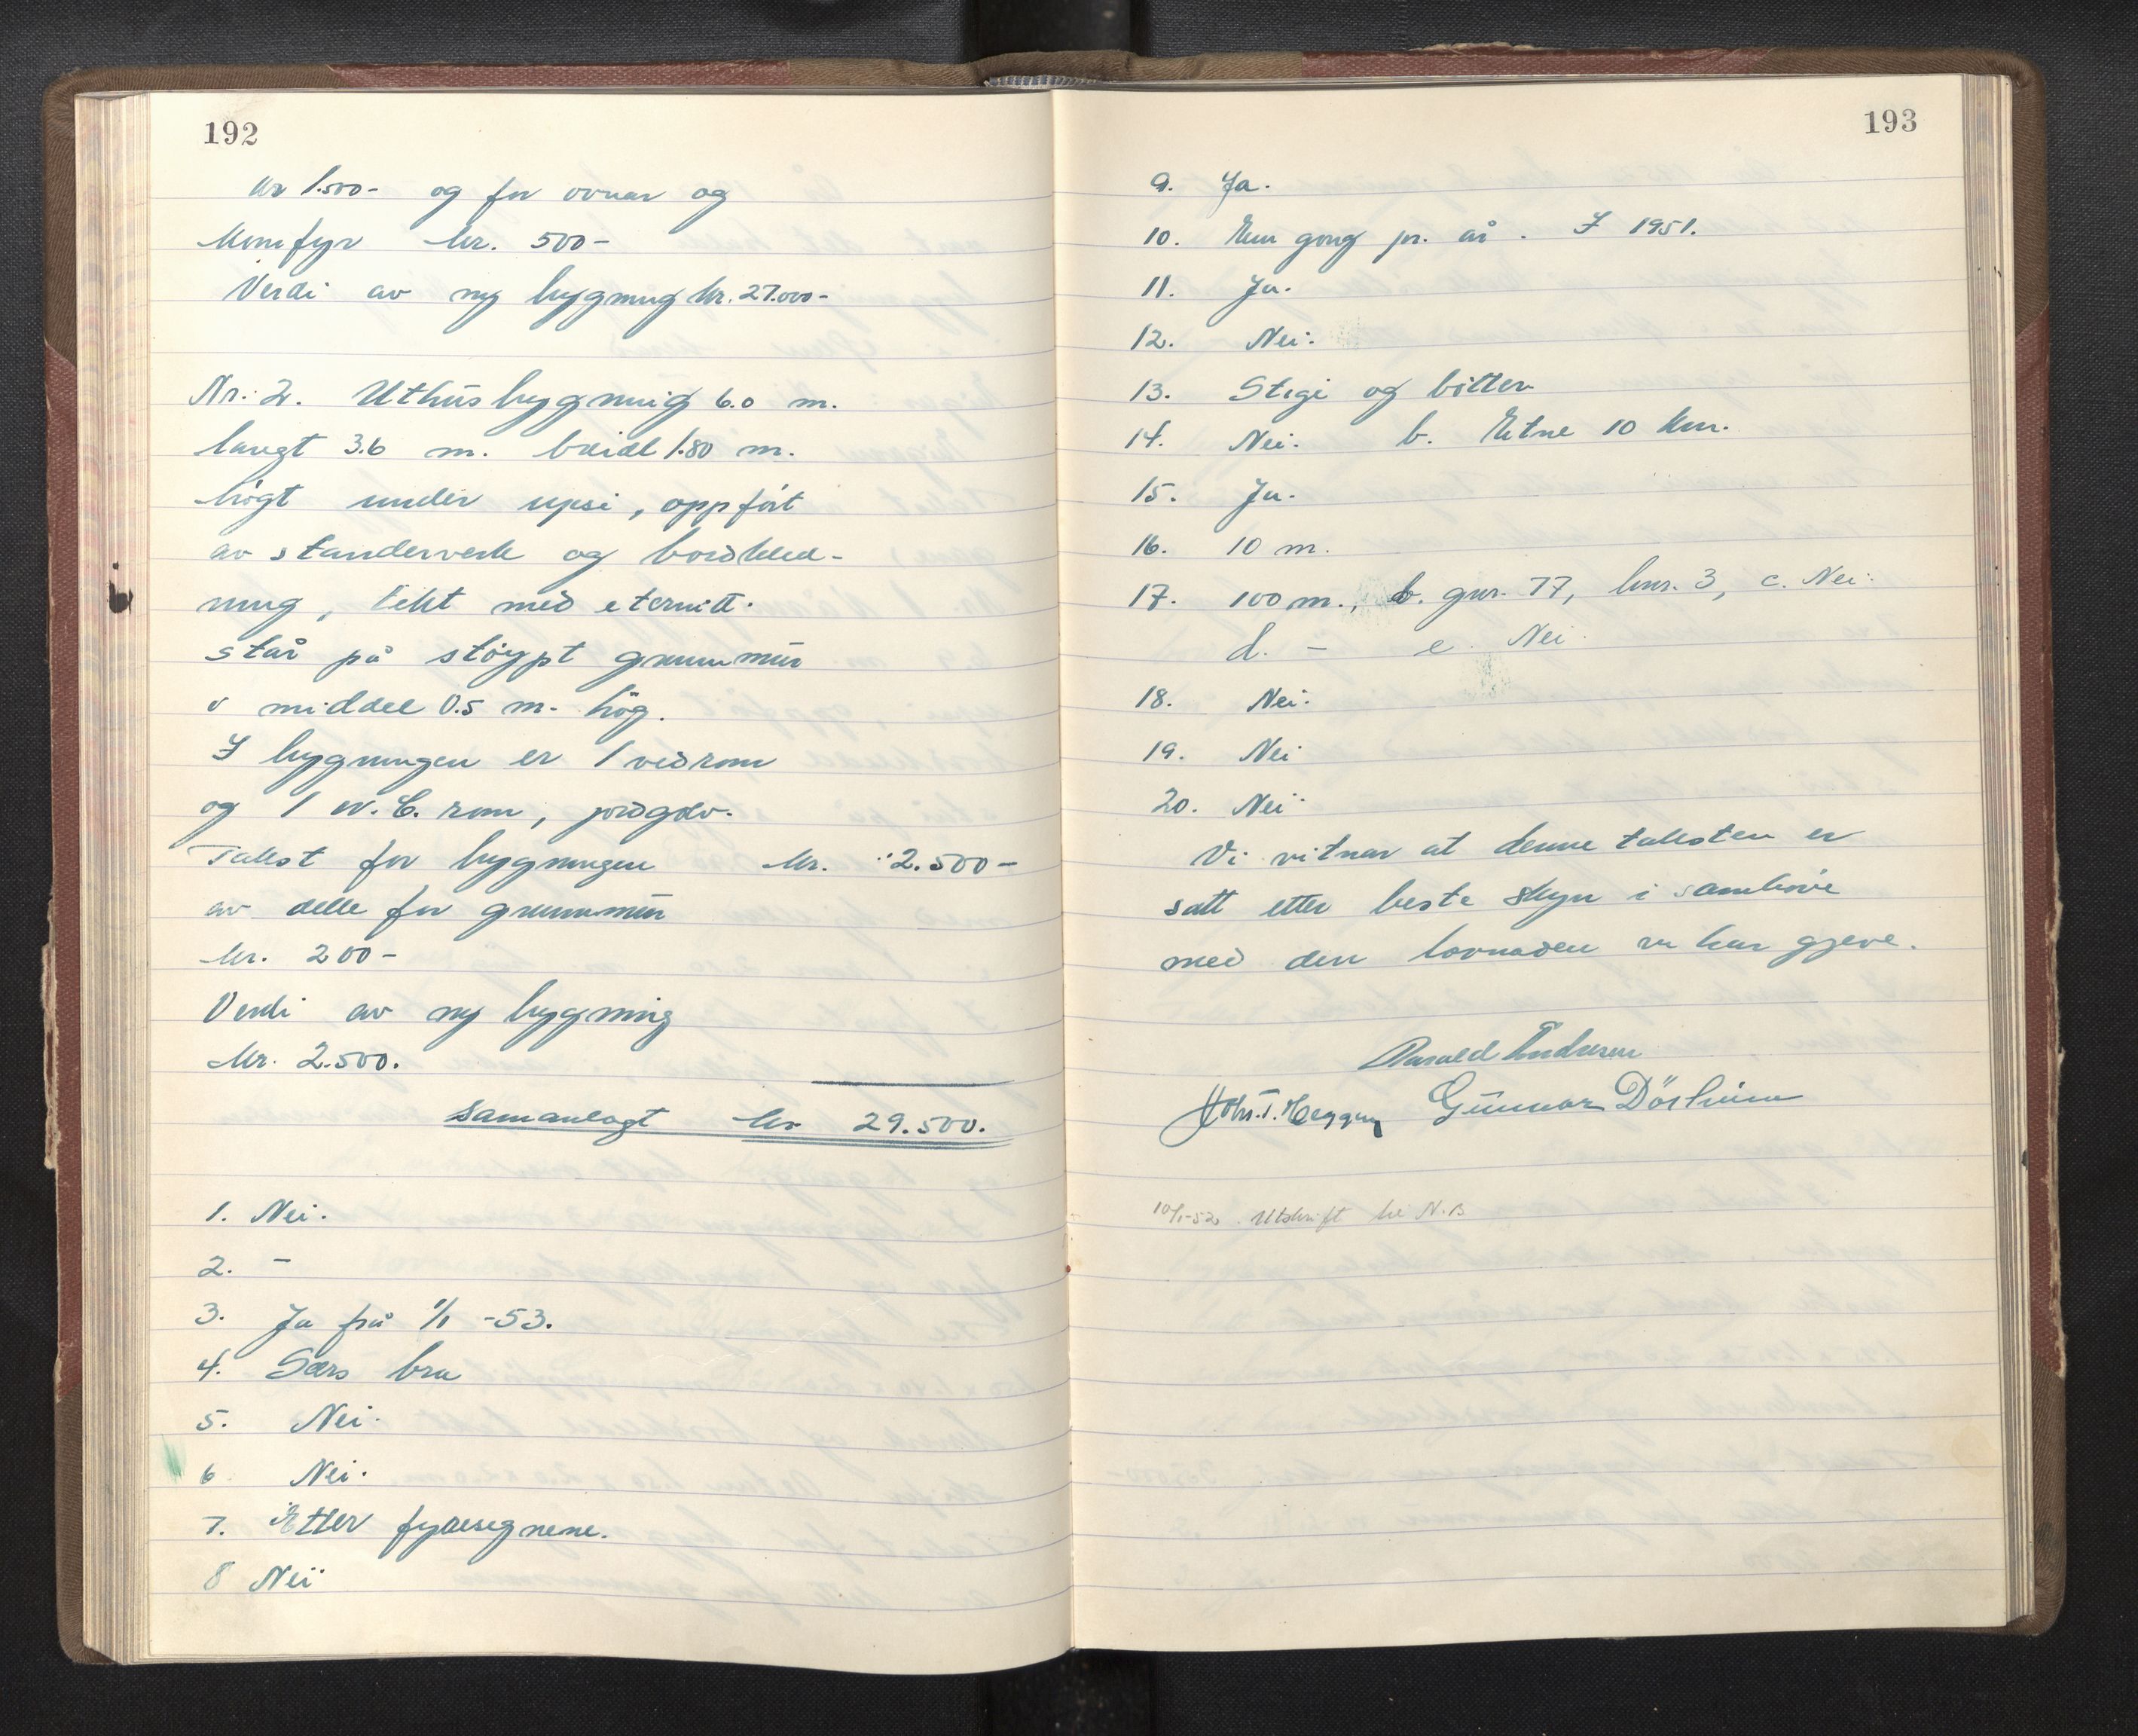 192
kr 1.500- og for ovnar og
komfyr kr. 500-
Verdi av ny bygning kr. 27.000-
Nr. 2. Uthusbygning 6.0 m.
langt 3.6 m. breidt 1.80 m.
høgt under upsi, oppført
av standerverk og bordkled-
ning, tekt med eternitt.
står på støypt grunnmur
i middel 0.5 m. høg.
I bygningen er 1 vedrom
og 1 W.C. rom, jordgolv.
Takst for bygningen kr. 2.500-
av dette for grunnmur
kr. 200-
Verdi av ny bygning
kr. 2.500.
Samanlagt kr 29.500.
1. Nei.
2. -
3. Ja frå 1/1 -53.
4. Særs bra
5. Nei.
6 Nei.
7. Etter fyresegnene.
8 Nei
193
9. Ja.
10. Ein gong pr. år. I 1951.
11. Ja.
12. Nei.
13. Stige og bøtter
14. Nei. b. Etne 10 km.
15. Ja.
16. 10 m.
17. 100 m., b. gnr. 77, bnr. 3, c. Nei.
d. - e. Nei.
18. Nei.
19. Nei
20. Nei
Vi vitnar at denne taksten er
satt etter beste skyn i samhøve
med den lovnaden vi har gjeve.
Harald Andresen
Johs. T. Heggen Gunnar Dørheim
10/1-52. Utskrift til N.B.